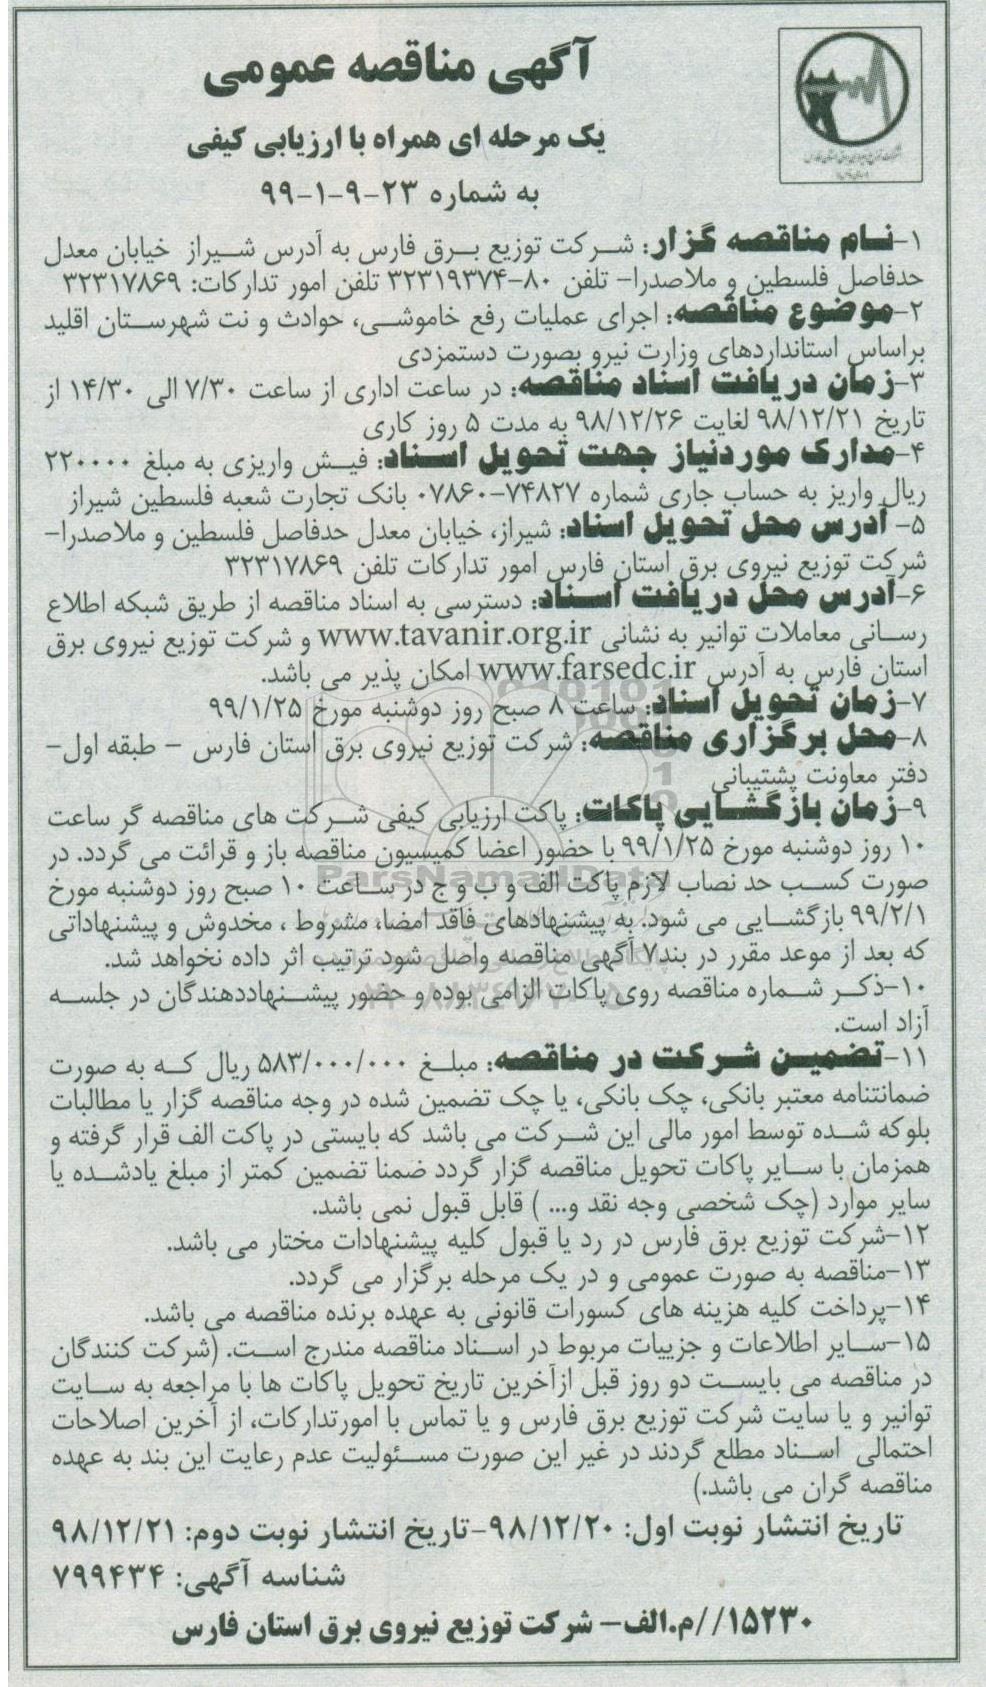 آگهی مناقصه عمومی
یک مرحله ای همراه با ارزیابی کیفی
به شماره ۲۳-۹-۱-۹۹
۱-نام مناقصه گزار: شرکت توزیع برق فارس به آدرس شیراز خیابان معدل
حدفاصل فلسطین و ملاصدرا- تلفن ۸۰-۳۲۳۱۹۳۷۴ تلفن امور تدارکات: ۳۲۳۱۷۸۶۹
۲-موضوع مناقصه: اجرای عملیات رفع خاموشی، حوادث و نت شهرستان اقلید
براساس استانداردهای وزارت نیرو بصورت دستمزدی
۳-زمان دریافت اسناد مناقصه: در ساعت اداری از ساعت ۷/۳۰ الی ۱۴/۳۰ از
تاریخ ۹۸/۱۲/۲۱ لغایت ۹۸/۱۲/۲۶ به مدت ۵ روز کاری
۴-مدارک موردنیاز جهت تحویل اسناد: فیش واریزی به مبلغ ۲۲۰۰۰۰
ریال واریز به حساب جاری شماره ۷۴۸۲۷-۰۷۸۶۰ بانک تجارت شعبه فلسطین شیراز
۵- آدرس محل تحویل اسناد: شیراز، خیابان معدل حدفاصل فلسطین و ملاصدرا-
شرکت توزیع نیروی برق استان فارس امور تدارکات تلفن ۳۲۳۱۷۸۶۹
۶-آدرس محل دریافت اسناد: دسترسی به اسناد مناقصه از طریق شبکه اطلاع
رسانی معاملات توانیر به نشانی www.tavanir.org.ir و شرکت توزیع نیروی برق
استان فارس به آدرس www.farsedc.ir امکان پذیر می باشد.
۷-زمان تحویل اسناد: ساعت ۸ صبح روز دوشنبه مورخ ۹۹/۱/۲۵
۸-محل برگزاری مناقصه: شرکت توزیع نیروی برق استان فارس - طبقه اول-
دفتر معاونت پشتیبانی
۹-زمان بازگشایی پاکات: پاکت ارزیابی کیفی شرکت های مناقصه گر ساعت
۱۰ روز دوشنبه مورخ ۹۹/۱/۲۵ با حضور اعضا کمیسیون مناقصه باز و قرائت می گردد. در
صورت کسب حد نصاب لازم پاکت الف و ب و ج در ساعت ۱۰ صبح روز دوشنبه مورخ
۹۹/۲/۱ بازگشایی می شود. به پیشنهادهای فاقد امضا، مشروط ، مخدوش و پیشنهاداتی
که بعد از موعد مقرر در بند۷ آگهی مناقصه واصل شود ترتیب اثر داده نخواهد شد.
۱۰-ذکر شماره مناقصه روی پاکات الزامی بوده و حضور پیشنهاددهندگان در جلسه
آزاد است.
۱۱-تضمین شرکت در مناقصه: مبلغ ۵۸۳/۰۰۰/۰۰۰ ریال که به صورت
ضمانتنامه معتبر بانکی، چک بانکی، یا چک تضمین شده در وجه مناقصه گزار یا مطالبات
بلوکه شده توسط امور مالی این شرکت می باشد که بایستی در پاکت الف قرار گرفته و
همزمان با سایر پاکات تحویل مناقصه گزار گردد ضمنا تضمین کمتر از مبلغ یادشده یا
سایر موارد (چک شخصی وجه نقد و... ) قابل قبول نمی باشد.
۱۲-شرکت توزیع برق فارس در رد یا قبول کلیه پیشنهادات مختار می باشد.
۱۳-مناقصه به صورت عمومی و در یک مرحله برگزار می گردد.
۱۴-پرداخت کلیه هزینه های کسورات قانونی به عهده برنده مناقصه می باشد.
۱۵-سایر اطلاعات و جزییات مربوط در اسناد مناقصه مندرج است. (شرکت کنندگان
در مناقصه می بایست دو روز قبل ازآخرین تاریخ تحویل پاکات ها با مراجعه به سایت
توانیر و یا سایت شرکت توزیع برق فارس و یا تماس با امورتدارکات، از آخرین اصلاحات
احتمالی اسناد مطلع گردند در غیر این صورت مسئولیت عدم رعایت این بند به عهده
مناقصه گران می باشد.)
تاریخ انتشار نوبت اول: ۹۸/۱۲/۲۰-تاریخ انتشار نوبت دوم: ۹۸/۱۲/۲۱
شناسه آگهی: ۷۹۹۴۳۴
۱۵۲۳۰//م.الف- شرکت توزیع نیروی برق استان فارس